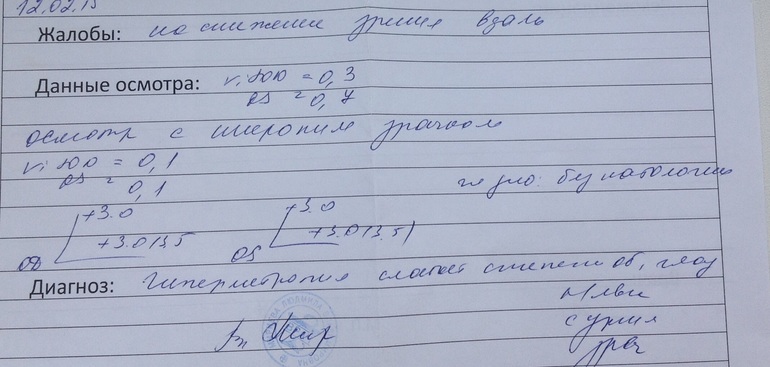 12.02.15
Жалобы: на снижение зрения вдаль
Данные осмотра: visOD = 0,3
OS = 0,7
осмотр с широким зрачком
visOD = 0,1
OS = 0,1
гл. дно: без патологии
+3.0 +3.0
OD +3.0 OS +3.0
Диагноз: Гиперметропия слабой степени об. глаз
с узким